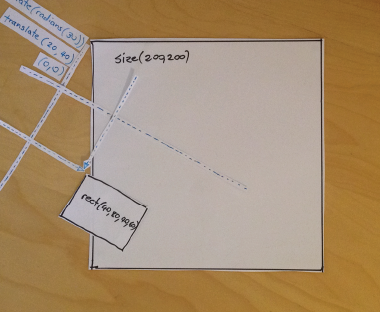 rotate(radians(30)
translate (20,40)
(0,0)
size(200,200)
rect(40,80,40,60)